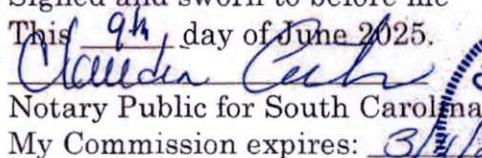 Signed and sworn to before me
This 9th day of June 2025.
Notary Public for South Carolina
My Commission expires: 3/